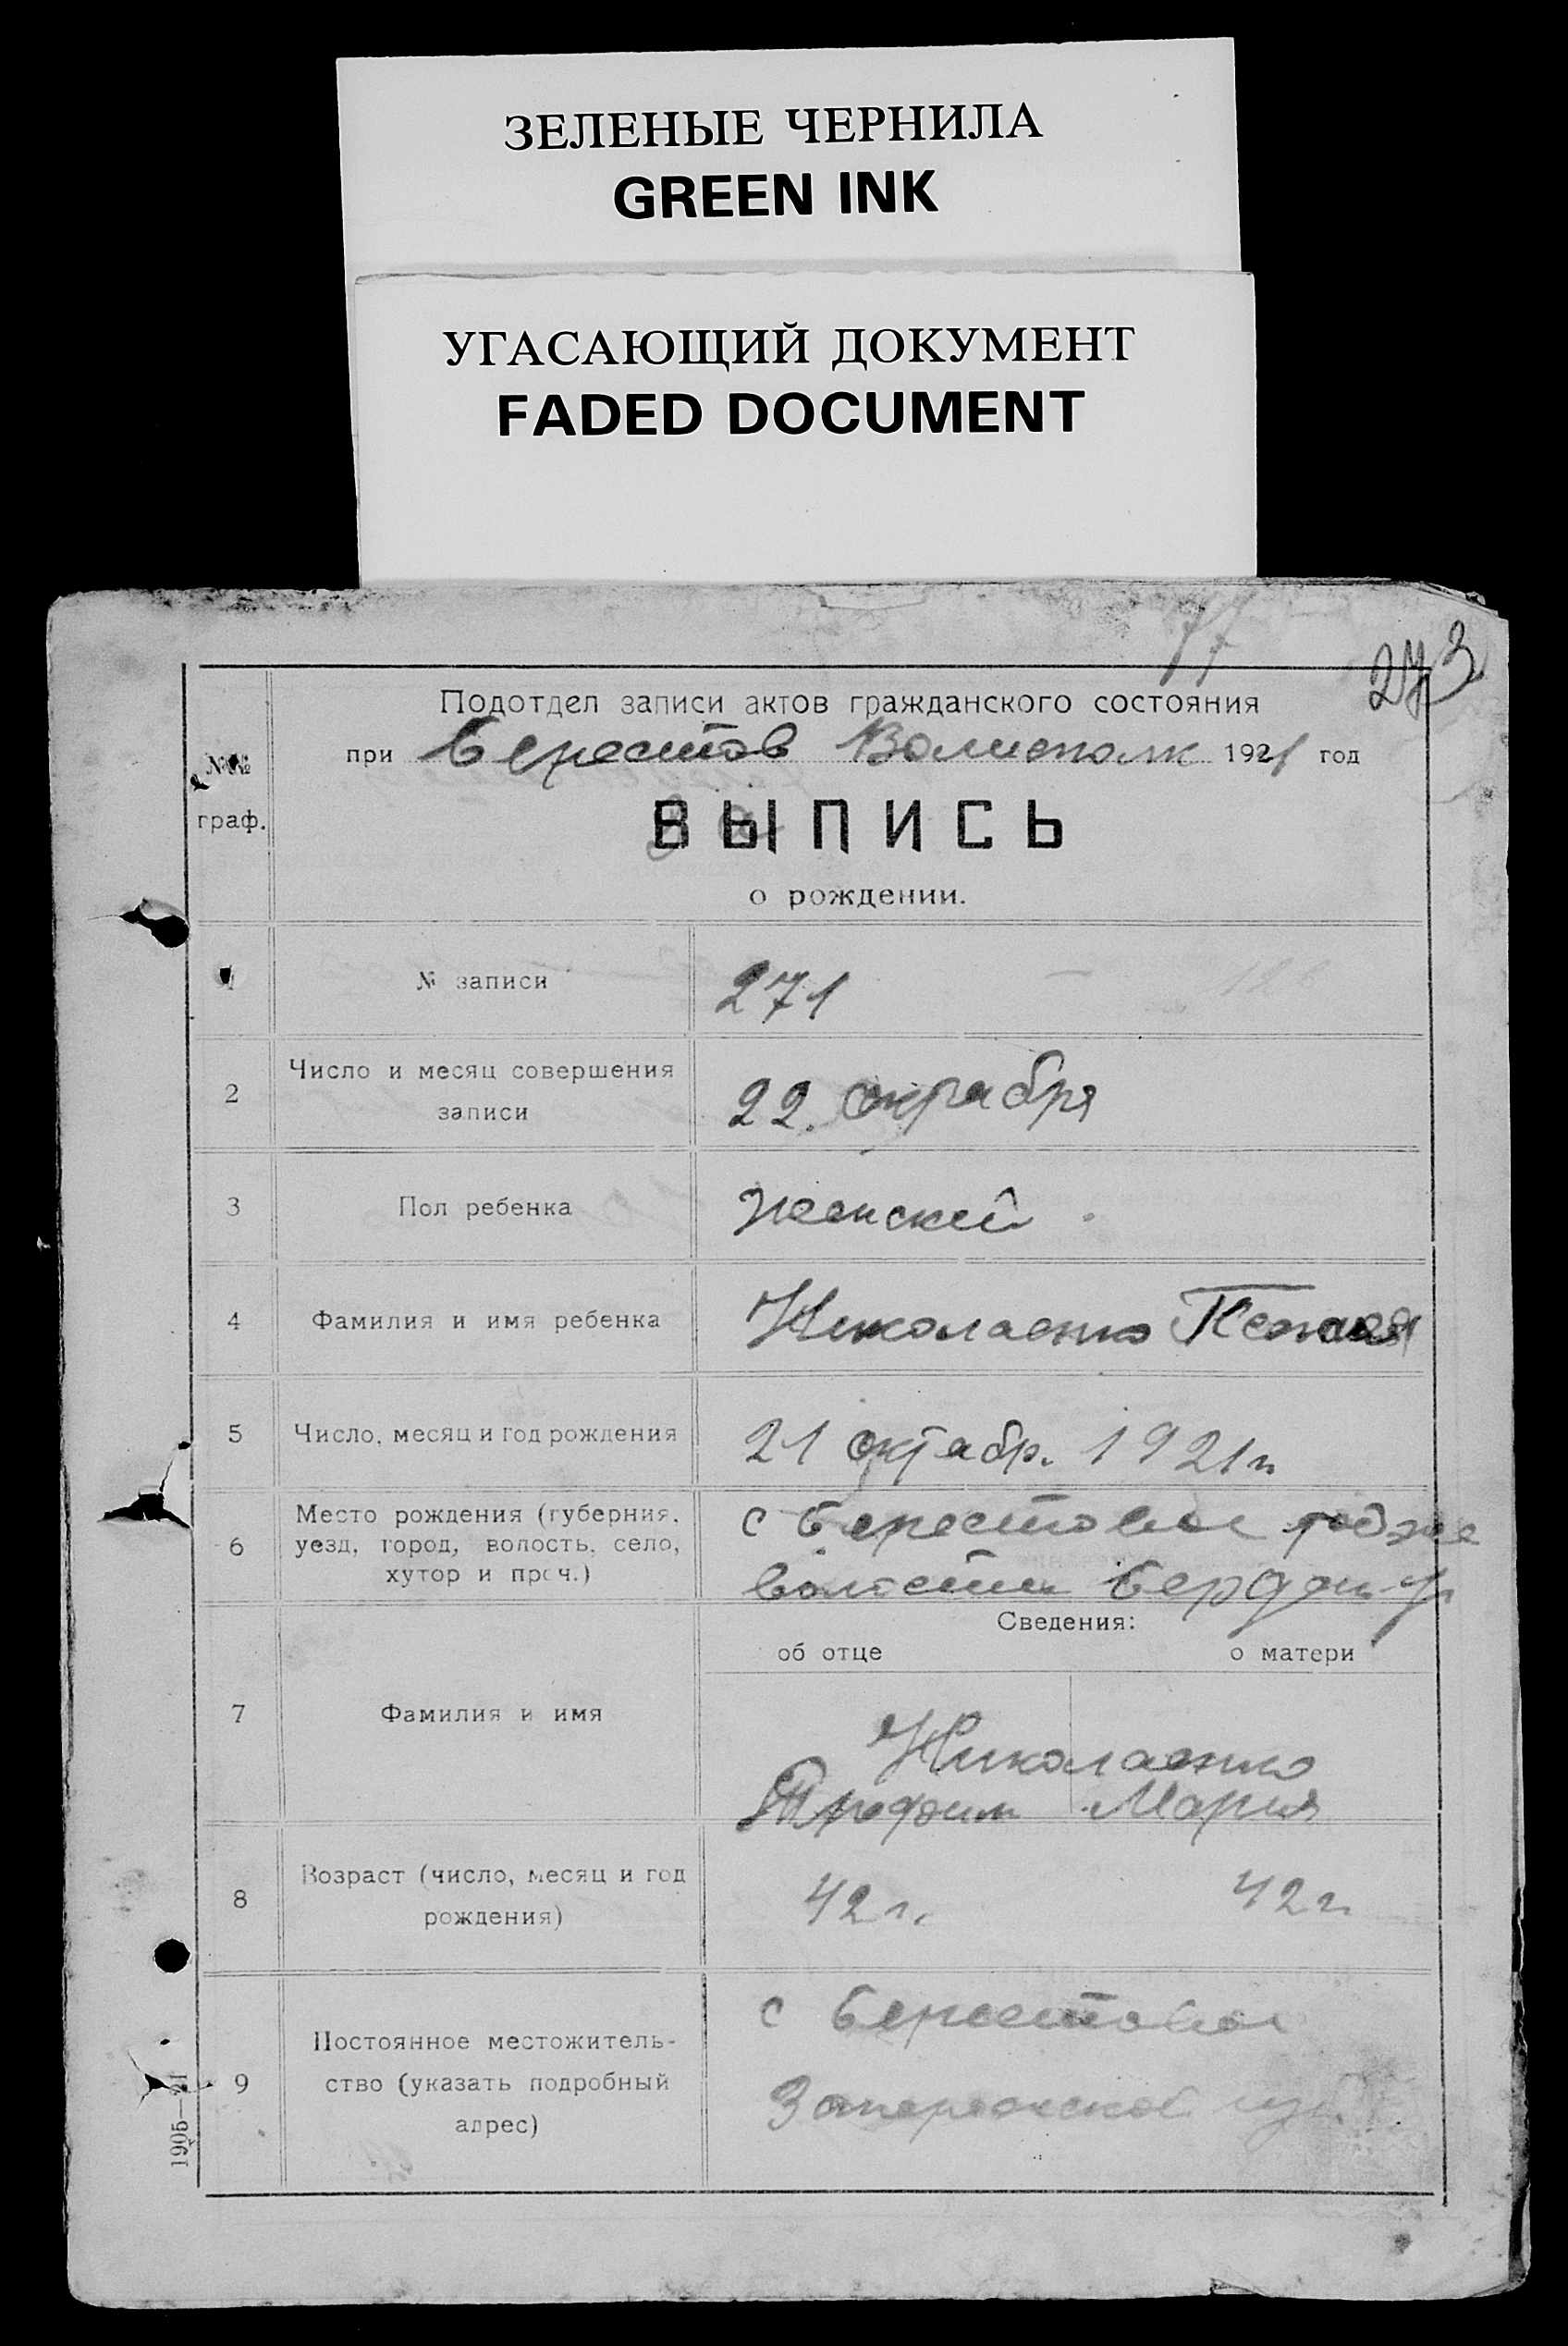 ЗЕЛЕНЫЕ ЧЕРНИЛА
GREEN INK
УГАСАЮЩИЙ ДОКУМЕНТ
FADED DOCUMENT
77
273
Подотдел записи актов гражданского состояния
№№
граф.
при Берестов Волисполк 1921 год
ВЫПИСЬ
о рождении.
1 № записи 271
2 Число и месяц совершения
записи
22 октября
3 Пол ребенка женский
4 Фамилия и имя ребенка Николаенко
5 Число, месяц и год рождения 21 октябр. 1921 г.
6 Место рождения (губерния,
уезд, город, волость, село,
хутор и проч.)
с Берестовое
волости Бердян. у
Сведения:
об отце о матери
7 Фамилия и имя
Николаенко
Трофим Мария
8 Возраст (число, месяц и год
рождения)
42 г. 42 г.
9 Постоянное местожитель-
ство (указать подробный
адрес)
с Берестовое
Запорожской губ.
1905—21